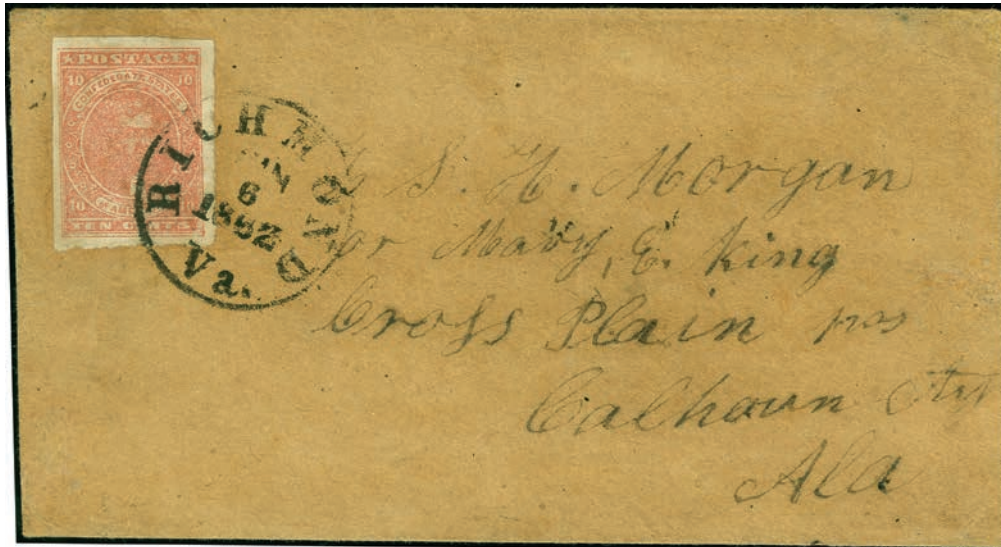 POSTAGE
10 10
CONFEDERATE STATES
10
TEN CENTS
RICHMOND
6
1862
Va.
S. H. Morgan
or Mary, E. King
Cross Plain
Calhoun
Ala